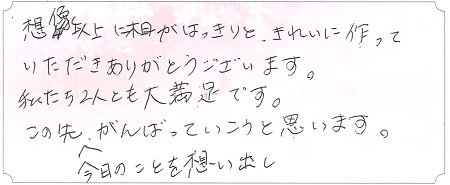 想像以上に木目がはっきりと、きれいに作って
いただきありがとうございます。
私たち2人とも大満足です。
この先、がんばっていこうと思います。
今日のことを想い出し